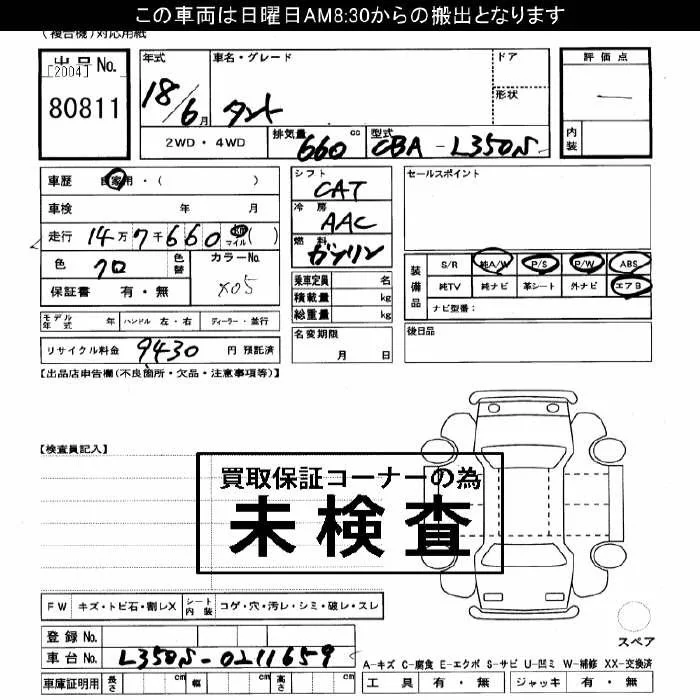 この車両は日曜日AM8:30からの搬出となります
(複合機)対応用紙
出品No.
[2004]
80811
年式
18/6月
車名・グレード
タント
ドア
形状
評価点
—
内装
2WD・4WD
排気量 660 cc
型式 CBA-L350S
車歴 自家用・( )
車検 年 月
走行 14万7千660 km マイル ( )
色 クロ
色替
カラーNo. X05
保証書 有・無
シフト CAT
冷房 AAC
燃料 ガソリン
乗車定員 名
積載量 kg
総重量 kg
セールスポイント
装備品
S/R 純A/W P/S P/W ABS
純TV 純ナビ 革シート 外ナビ エアB
ナビ型番:
モデル年式 年 ハンドル 左・右 ディーラー・並行
名変期限
月 日
後日品
リサイクル料金 9430 円 預託済
【出品店申告欄(不良箇所・欠品・注意事項等)】
【検査員記入】
買取保証コーナーの為
未検査
FW キズ・トビ石・割レX シート内装 コゲ・穴・汚レ・シミ・破レ・スレ
登録No.
車台No. L350S-0211659
スペア
A-キズ C-腐食 E-エクボ S-サビ U-凹ミ W-補修 XX-交換済
車庫証明用 長さ cm 幅 cm 高さ cm
工具 有・無 ジャッキ 有・無